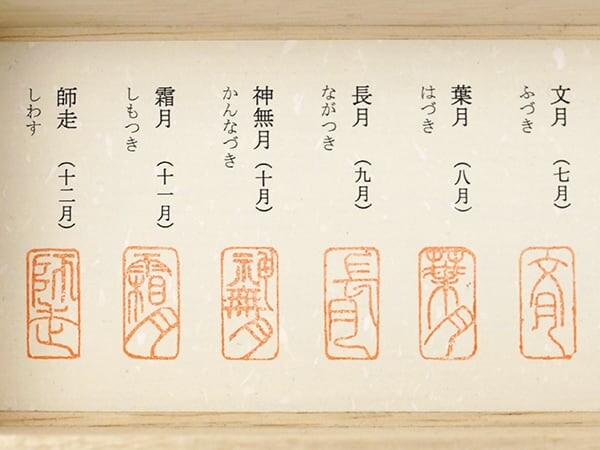 文月（七月）
ふづき
葉月（八月）
はづき
長月（九月）
ながつき
神無月（十月）
かんなづき
霜月（十一月）
しもつき
師走（十二月）
しわす
文月
葉月
長月
神無月
霜月
師走